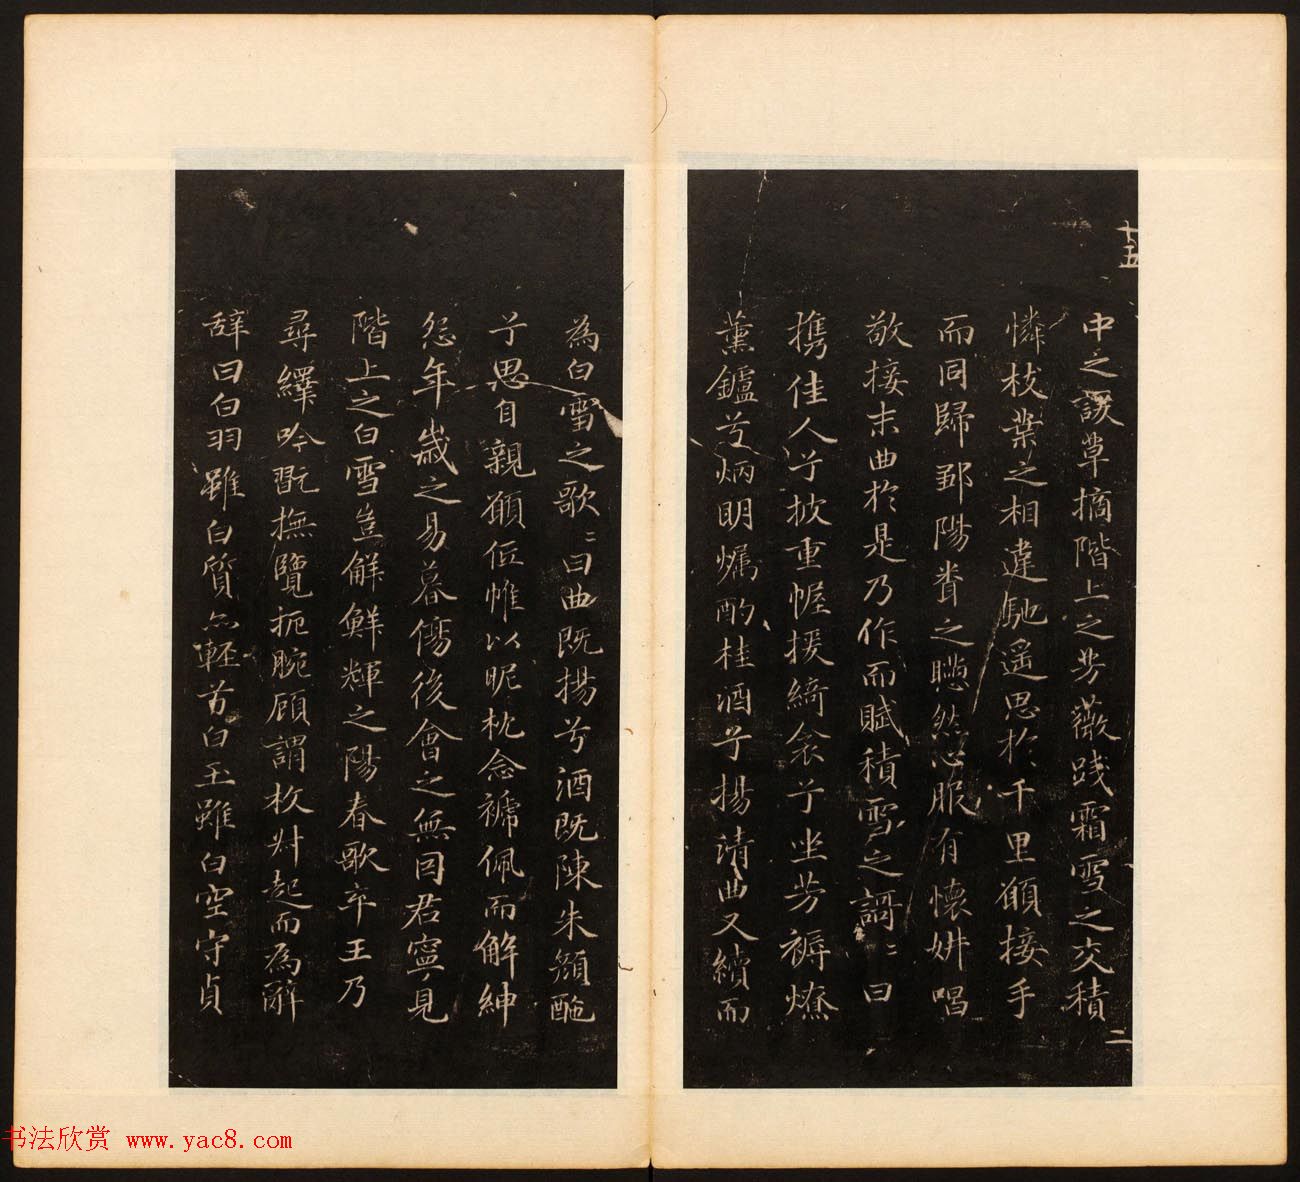 十五
中之諼草摘階上之芳薇踐霜雪之交積
憐枝葉之相違馳遥思於千里願接手
而同歸鄒陽聞之懣然心服有懷妍唱
敬接末曲於是乃作而賦積雪之謌〻曰
携佳人兮披重幄援綺衾兮坐芳褥燎
薰鑪兮炳明燭酌桂酒兮揚清曲又續而
二
為白雪之歌〻曰曲既揚兮酒既陳朱顔酡
兮思自親願低帷以昵枕念褫佩而解紳
怨年歲之易暮傷後會之無因君寧見
階上之白雪豈解鮮輝之陽春歌卒王乃
尋繹吟翫撫覽扼腕顧謂枚叔起而為辭
辭曰白羽雖白質以輕兮白玉雖白空守貞
书法欣赏 www.yac8.com